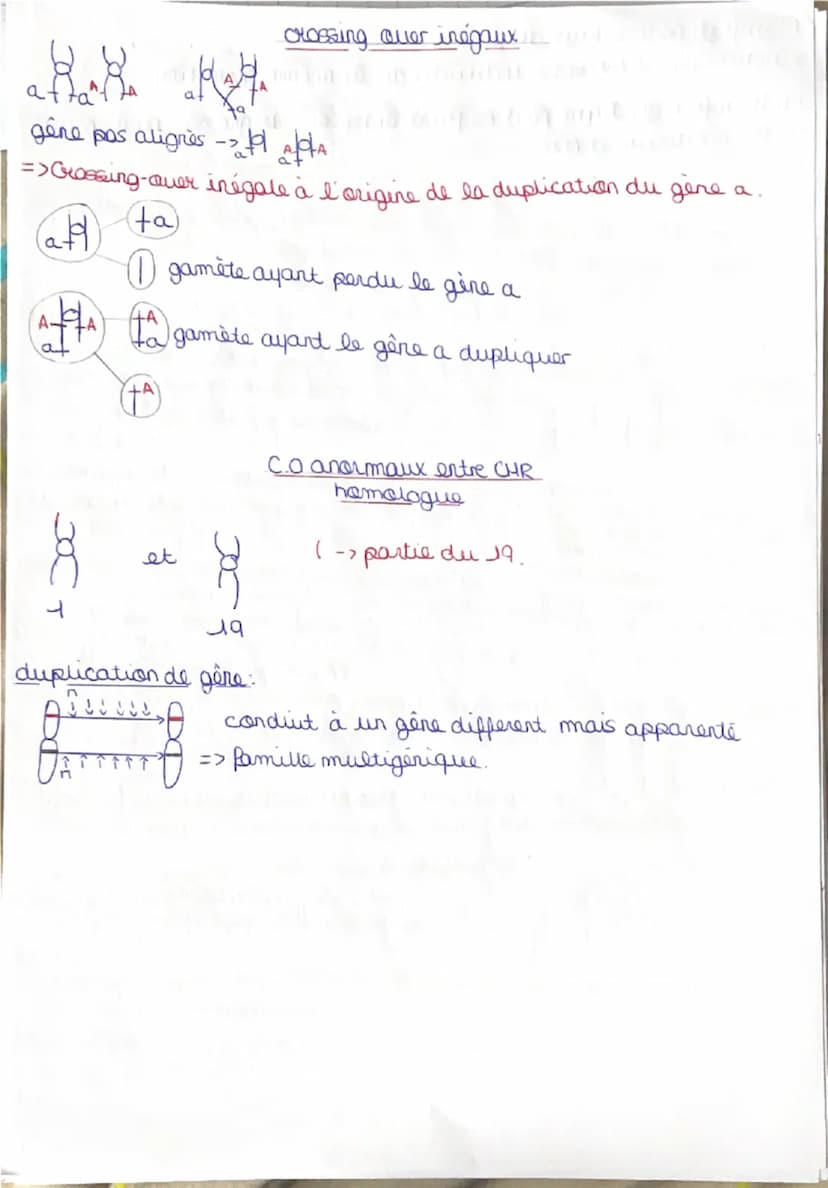 crossing over inégaux
a a A A a A A a
gêne pas alignès -> a A A a
=> Crossing-over inégale à l'origine de la duplication du gène a.
a a
gamète ayant perdu le gène a
A A a A a gamète ayant le gêne a dupliquer
A
C.O anormaux entre CHR
homologue
et ( -> partie du 19.
1
19
duplication de gêne:
n
conduit à un gêne different mais apparenté
=> famille multigénique.
n